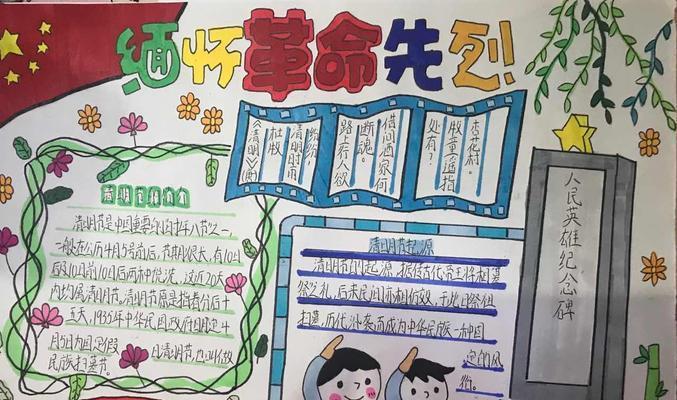 缅怀革命先烈!
《清明》(唐)
杜牧
清明时雨
纷纷,
路上行人欲
断魂。
借问酒家何
处有?
牧童遥指
杏花村。
人民英雄纪念碑
清明节简介
清明节是中国重要的传统节日之一,
一般在公历4月5号前后,节期很长,有10日
前8日后及10日前10日后两种说法,这近20天
内均属清明节。清明节原是指春分后十
五天,1935年中华民国政府明定4
月5日为国定假日清明节,也叫做
民族扫墓节。
清明节起源
清明节的起源,据传始于古代帝王将相墓
祭之礼,后来民间亦相仿效,于此日祭祖
扫墓,历代沿袭而成为中华民族一种固
定的风
俗。